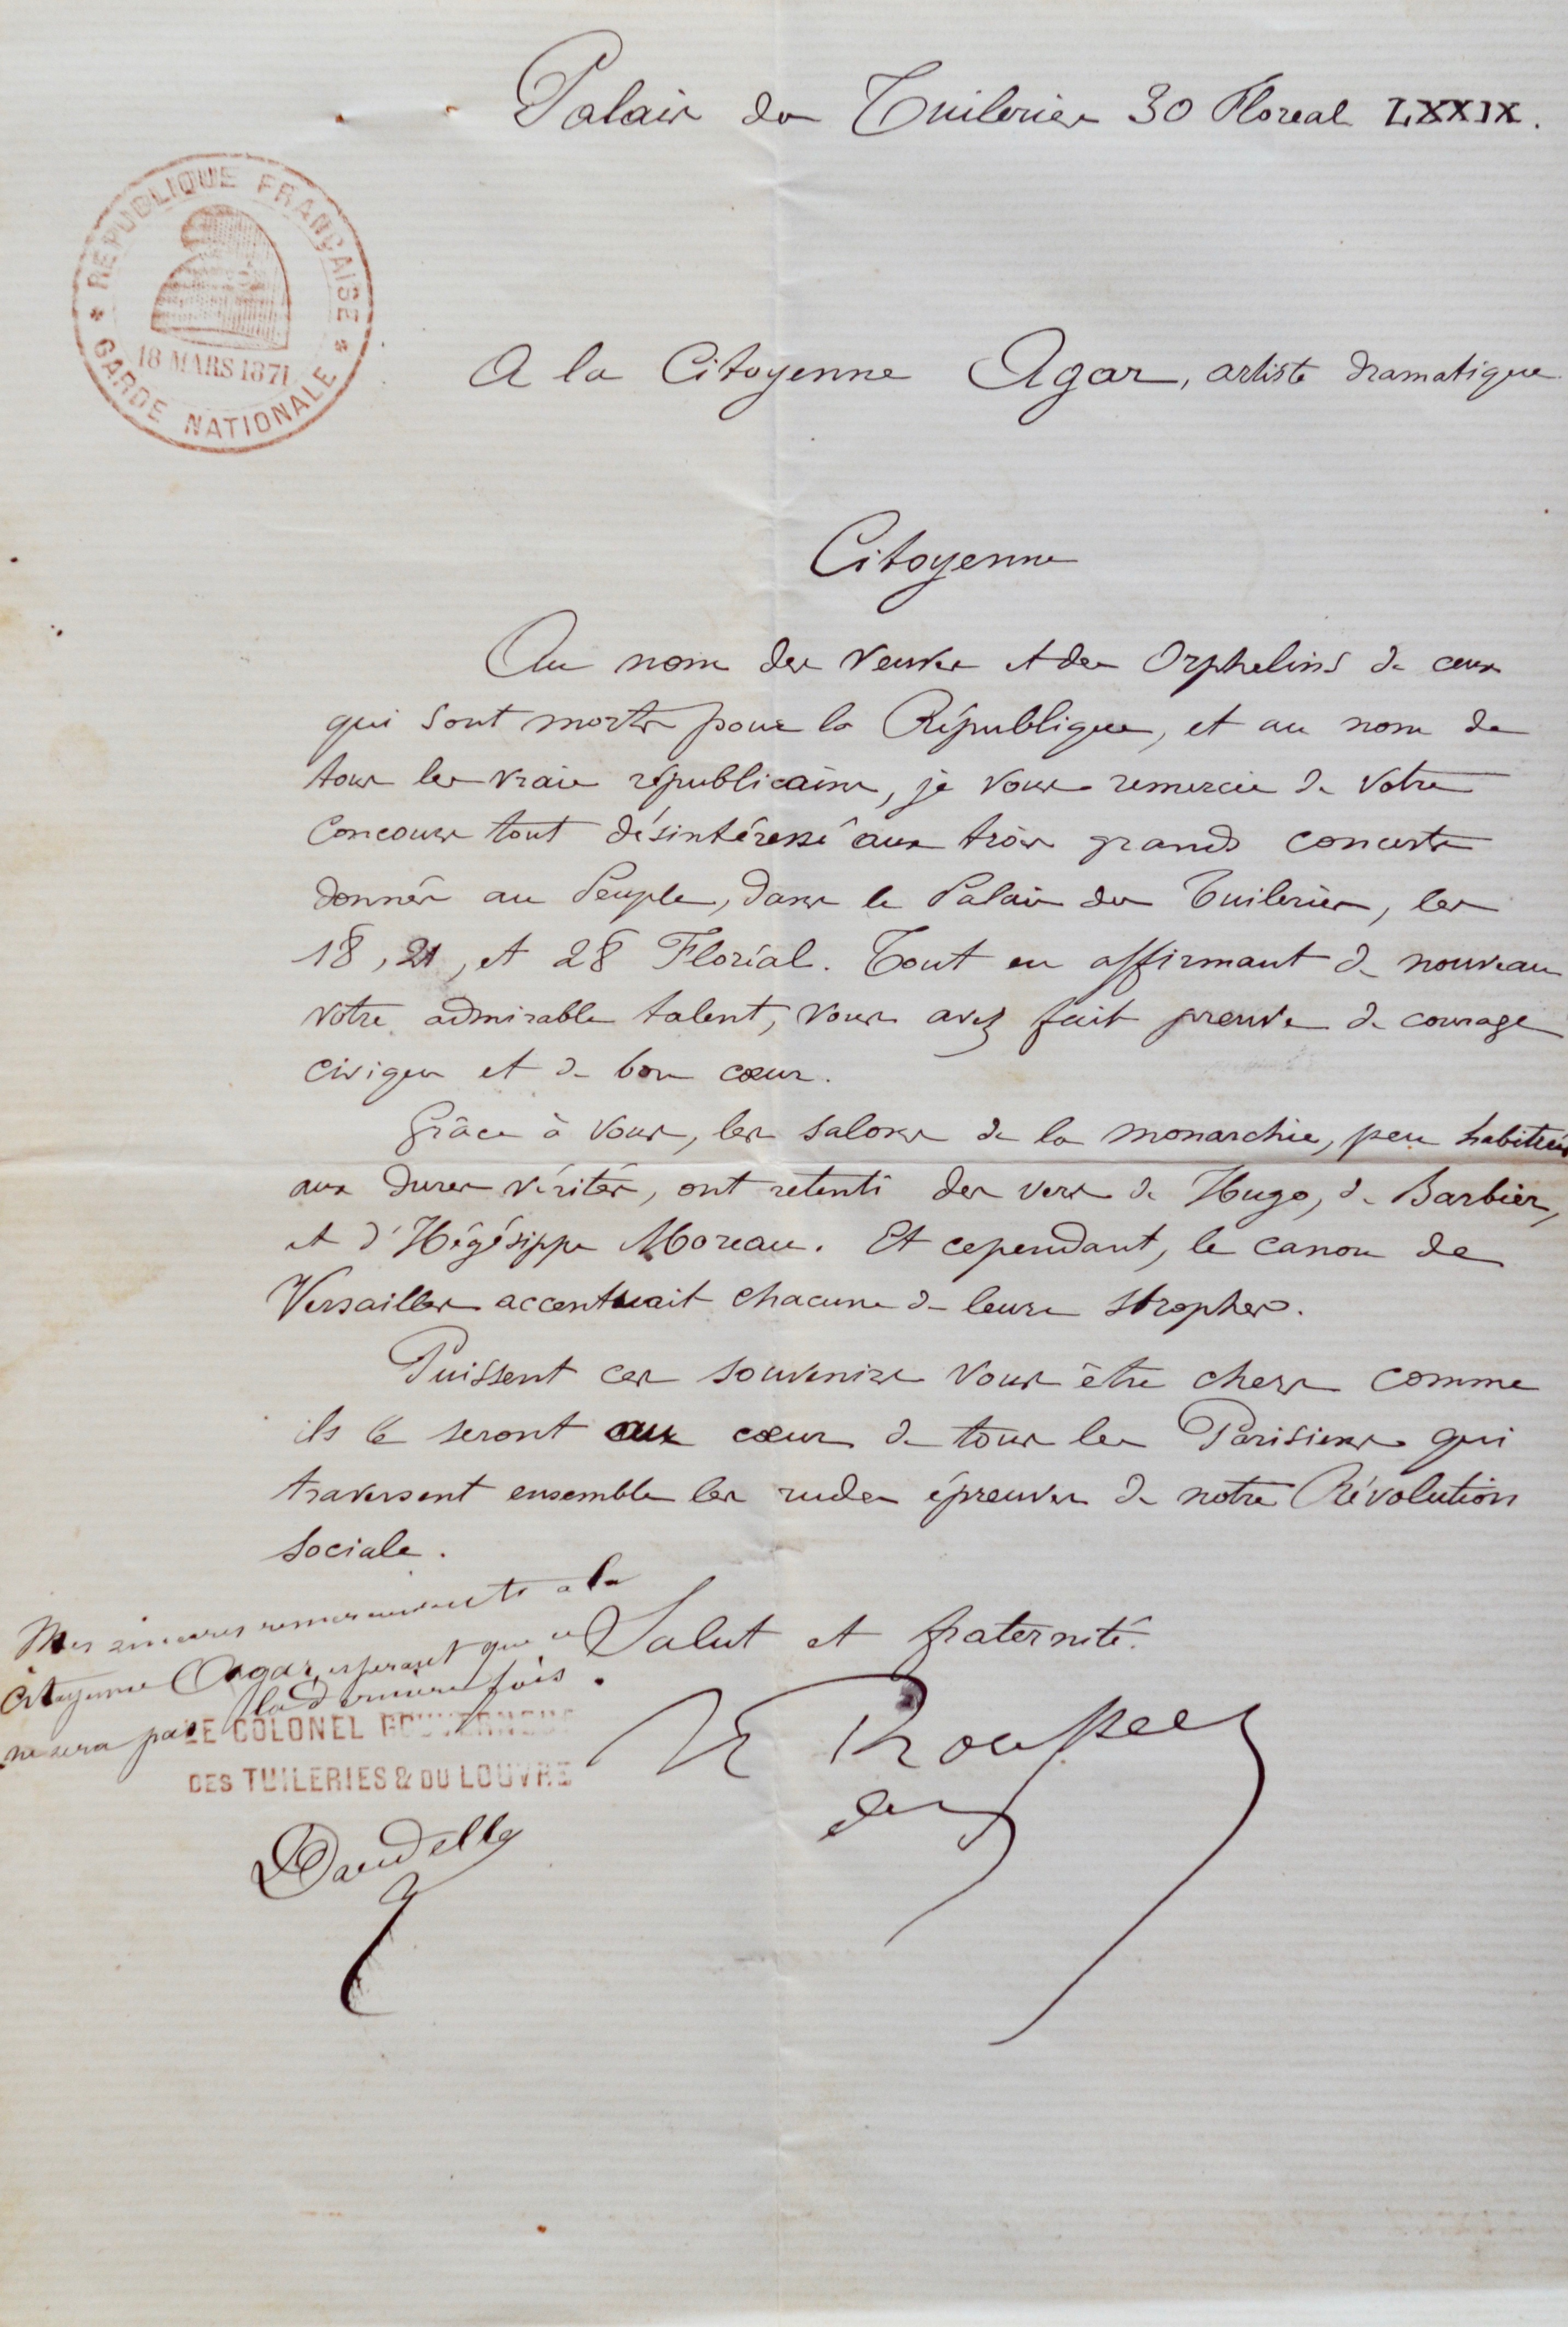 Palais des Tuileries 30 Floréal LXXIX.
RÉPUBLIQUE FRANÇAISE
18 MARS 1871
GARDE NATIONALE
A la Citoyenne Agar, artiste dramatique
Citoyenne
Au nom des Veuves et des Orphelins de ceux
qui sont morts pour la République, et au nom de
tous les vrais républicains, je vous remercie de votre
Concours tout désintéressé aux trois grands concerts
donnés au Peuple, dans le Palais des Tuileries, les
18, 21, et 28 Floréal. Tout en affirmant de nouveau
votre admirable talent, vous avez fait preuve de courage
civique et de bon cœur.
Grâce à vous, les salons de la monarchie, peu habitués
aux dures vérités, ont retenti des vers de Hugo, de Barbier,
et d'Hégésippe Moreau. Et cependant, le canon de
Versailles accentuait chacune de leurs strophes.
Puissent ces souvenirs vous être chers comme
ils le seront aux cœurs de tous les Parisiens qui
traversent ensemble les rudes épreuves de notre Révolution
sociale.
Salut et fraternité.
Mes sincères remerciements a la
Citoyenne Agar, esperant que ce
ne sera pas la dernière fois.
LE COLONEL GOUVERNEUR
DES TUILERIES & DU LOUVRE
Dardelle